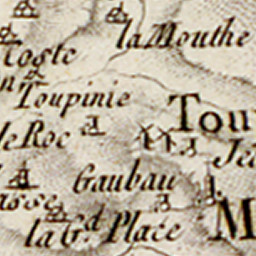 la Mouthe
Coste
Toupinie
Tou
le Roc
Je
Gaubau
asse
la Gd. Place
M